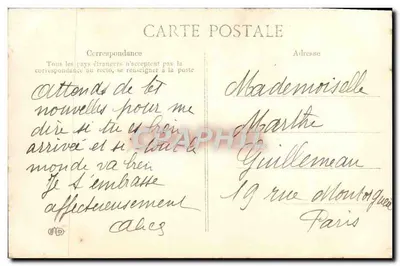 CARTE POSTALE
Correspondance
Tous les pays étrangers n'acceptent pas la
correspondance au recto, se renseigner à la poste
Adresse
attends de tes
nouvelles pour me
dire si tu es bien
arrivée et si tout le
monde va bien
Je t'embrasse
affectueusement
Mademoiselle
Marthe
Guillemeau
19 rue Montorgueil
Paris
CPARAMA